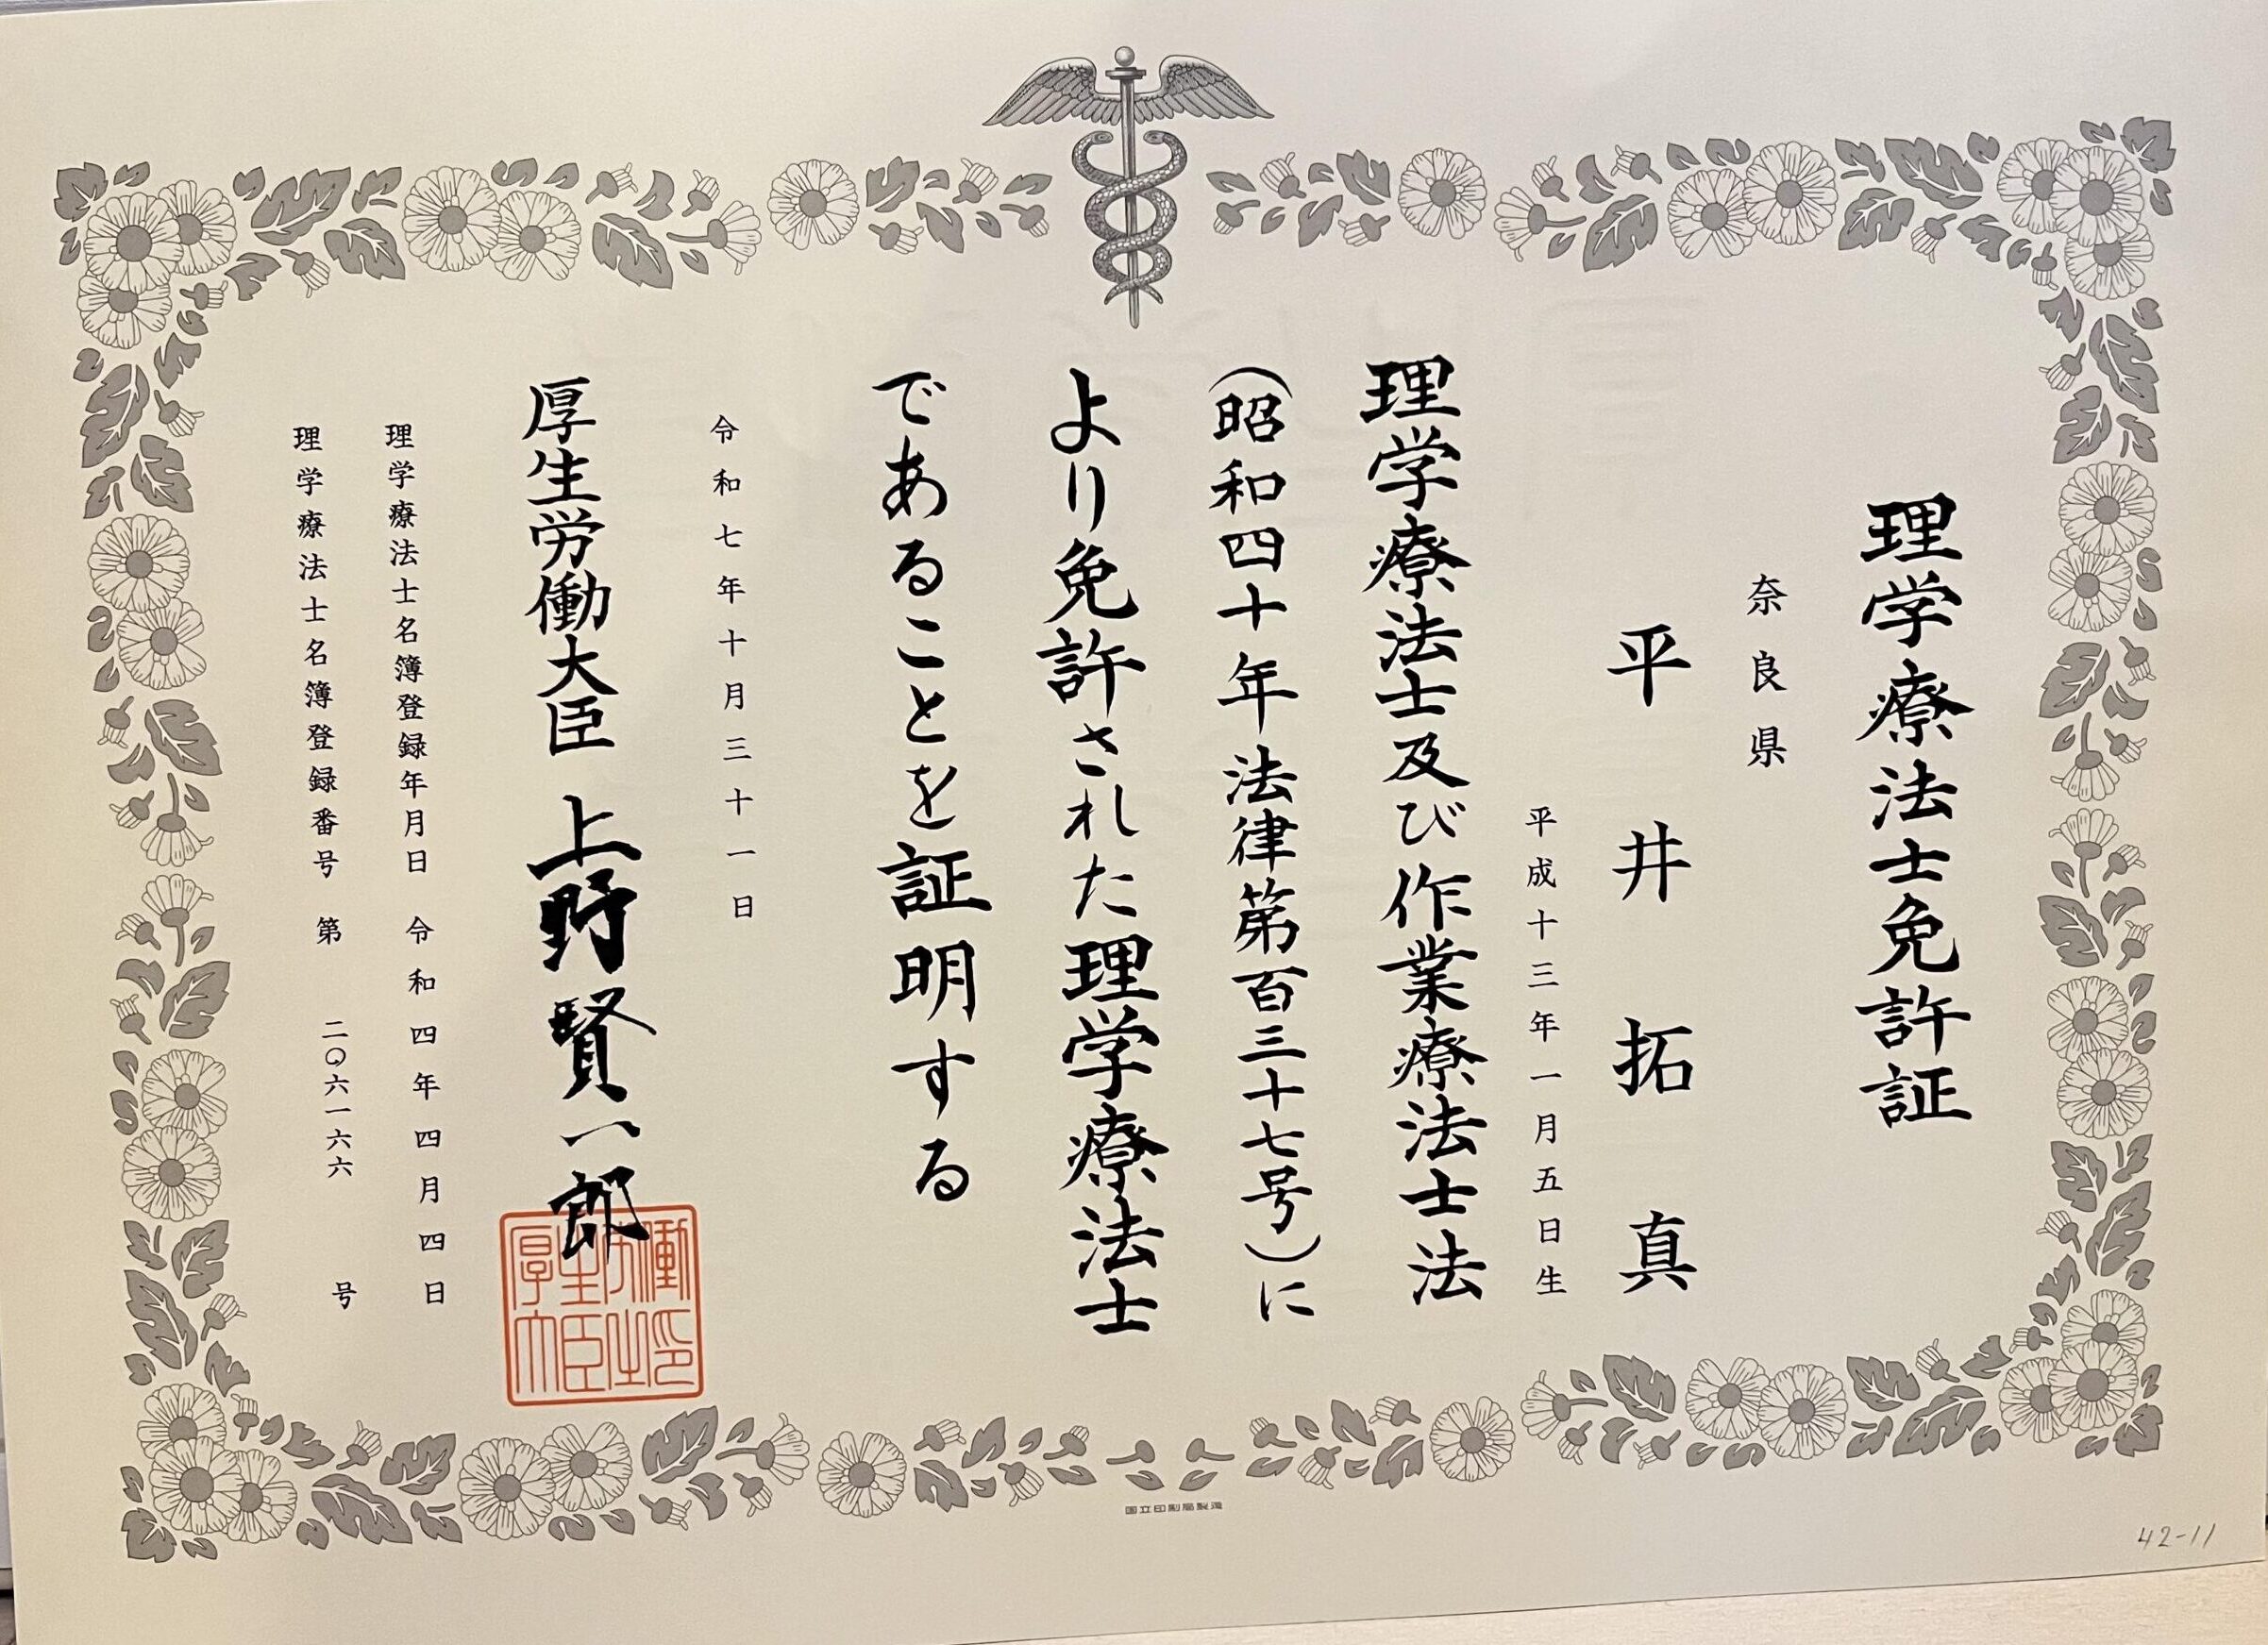 理学療法士免許証
奈良県
平井拓真
平成十三年一月五日生
理学療法士及び作業療法士法
（昭和四十年法律第百三十七号）に
より免許された理学療法士
であることを証明する
令和七年十月三十一日
厚生労働大臣 上野賢一郎
理学療法士名簿登録年月日 令和四年四月四日
理学療法士名簿登録番号 第 二〇六一六六 号
厚生労働大臣之印
国立印刷局製造
42-11